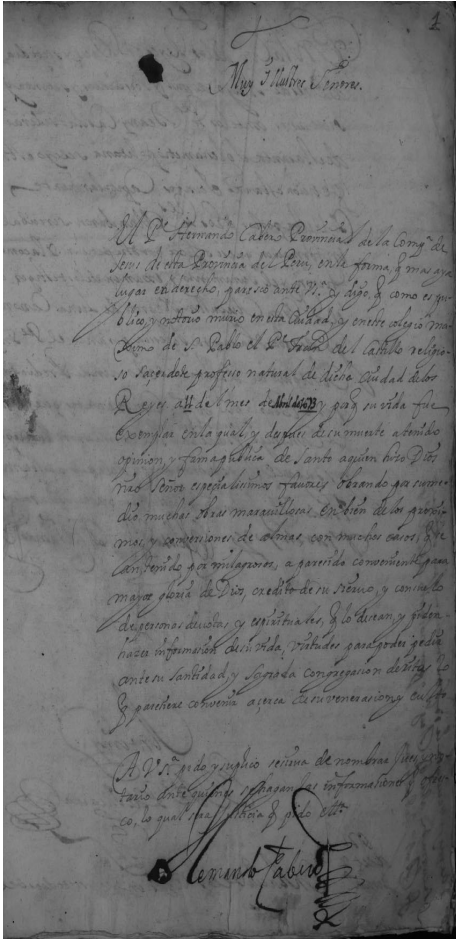 1
Muy Illustres Señores.
El Pe. Hernando Cabero Provincial de la Compa. de
Jesus de esta Provincia del Peru, en la forma, q mas aya
lugar en derecho, paresco ante Vsa. y digo, q como es pu
blico, y notorio murio en esta Ciudad, y en este colegio ma
ximo de S. Pablo el Pe. Franco. del Castillo religio
so sacerdote professo natural de dicha ciudad de los
Reyes a 11 de l mes de Abril de 1673 y porq su vida fue
exemplar en la qual, y despues de su muerte a tenido
opinion, y fama publica de santo a quien hizo Dios
nro Señor especialissimos favores obrando por su me
dio muchas obras maravillosas, en bien de los proxi
mos, y conversiones de almas, con muchos casos, q se
an tenido por milagrosos; a parecido conveniente para
mayor gloria de Dios, credito de su siervo, y consuelo
de personas devotas y espirituales, q lo desean, y piden
hazer informacion de su vida, virtudes para poder pedir
ante su santidad, y Sagrada congregacion de ritos lo
q pareciere convenir açerca de su veneracion, y culto
A Vsa. pido y suplico se sirva de nombrar Juez, y no
tario ante quienes se hagan las informaciones q ofres
co, lo qual sea justicia q pido etta.
Hernando Cabero